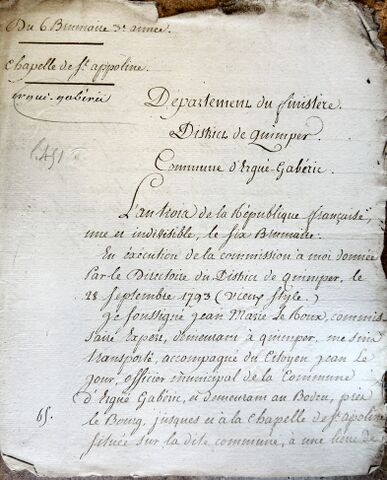 Du 6 Brumaire 3e année.
Chapelle de St. appoline.
ergué-gabéric
Departement du finistère.
District de quimper.
Commune d'Ergué-Gabéric.
L'an trois de la République française,
une et indivisible, le six Brumaire.
En exécution de la commission à moi donnée
par le Directoire du District de quimper, le
28 Septembre 1793 (vieux style.)
je soussigné jean Marie Le Roux, commis-
saire Expert, demeurant à quimper, me suis
transporté, accompagné du Citoyen jean le
jour, officier municipal de la Commune
d'Ergué Gabéric, et demeurant au Boden, près
65. le Bourg, jusques et à la Chapelle de St. apoline
située sur la dite commune, à une lieue de